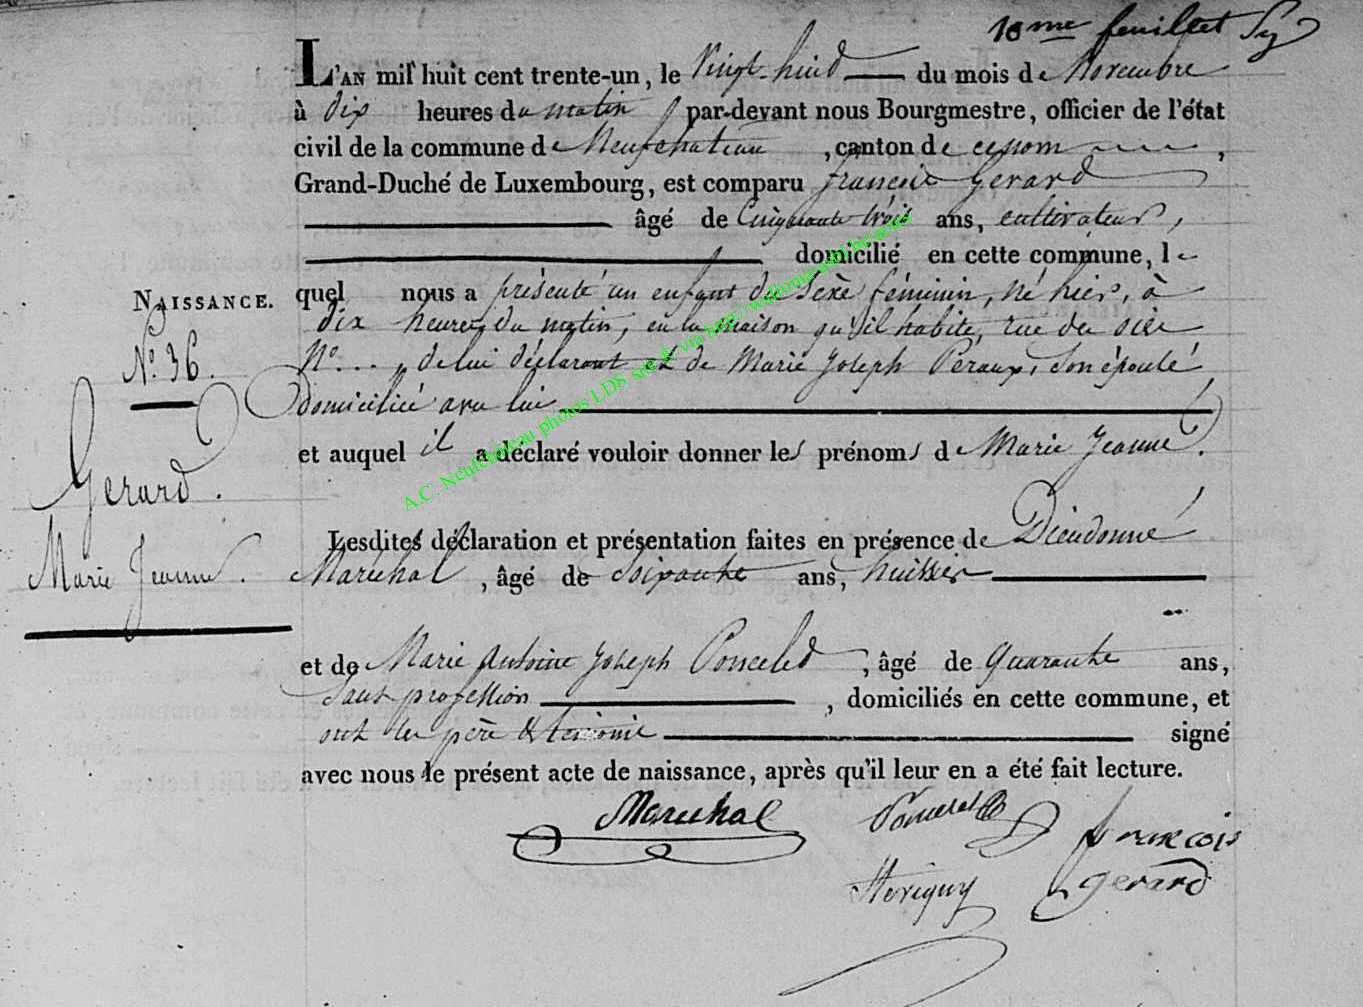 10me feuillet
L'AN mil huit cent trente-un, le Vingt-huit du mois de Novembre
à dix heures du matin par-devant nous Bourgmestre, officier de l'état
civil de la commune de Neufchateau, canton de ce nom,
Grand-Duché de Luxembourg, est comparu François Gerard
âgé de Cinquante trois ans, cultivateur,
domicilié en cette commune, le
NAISSANCE.
quel nous a présenté un enfant du sexe féminin, né hier, à
dix heures du matin, en la maison qu'il habite, rue du
N° 36.
N° ... de lui déclarant et de Marie Joseph Péraux, son épouse
domiciliée avec lui
et auquel il a déclaré vouloir donner les prénoms de Marie Jeanne.
Gerard.
Marie Jeanne.
Lesdites déclaration et présentation faites en présence de Dieudonné
Marechal, âgé de Soixante ans, huissier
et de Marie Antoine Joseph Poncelet, âgé de Quarante ans,
sans profession, domiciliés en cette commune, et
ont les père & témoins signé
avec nous le présent acte de naissance, après qu'il leur en a été fait lecture.
Marechal
Poncelet
francois
gerard
A.C. Neufchâteau photos LDS site & via http://wallonia-asbl.be/actes